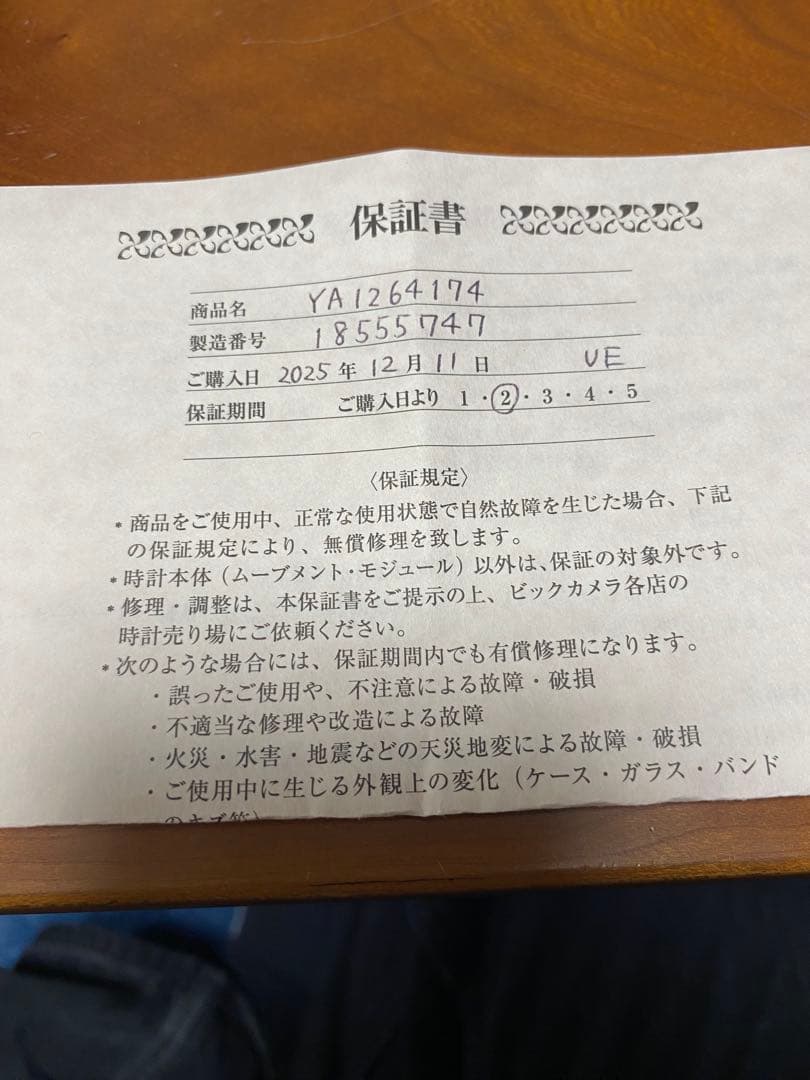 保証書
商品名 YA1264174
製造番号 18555747
ご購入日 2025年 12月 11日 UE
保証期間 ご購入日より 1・2・3・4・5
〈保証規定〉
* 商品をご使用中、正常な使用状態で自然故障を生じた場合、下記
の保証規定により、無償修理を致します。
* 時計本体(ムーブメント・モジュール)以外は、保証の対象外です。
* 修理・調整は、本保証書をご提示の上、ビックカメラ各店の
時計売り場にご依頼ください。
* 次のような場合には、保証期間内でも有償修理になります。
・誤ったご使用や、不注意による故障・破損
・不適当な修理や改造による故障
・火災・水害・地震などの天災地変による故障・破損
・ご使用中に生じる外観上の変化(ケース・ガラス・バンド